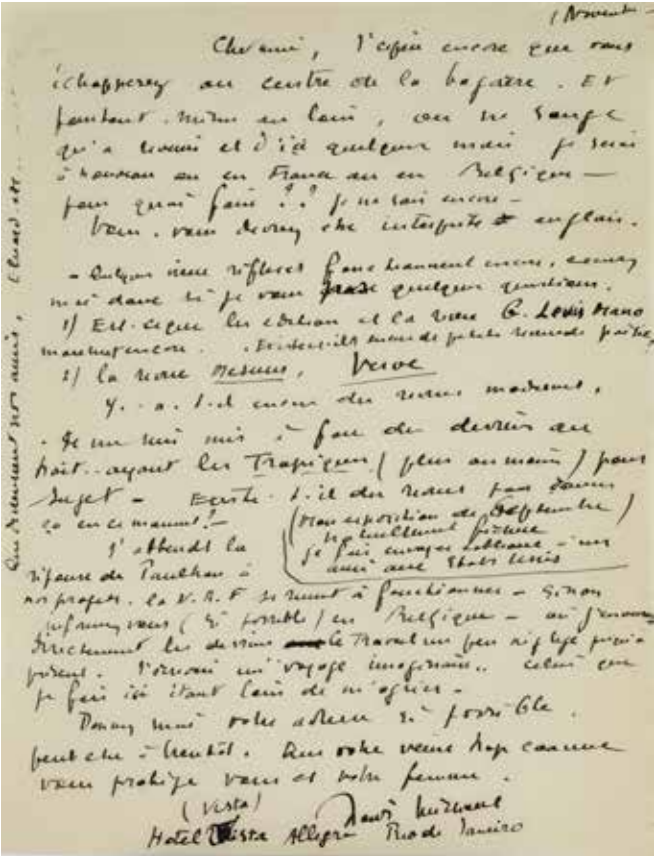 1 Novembre
Cher ami, J'espère encore que vous
échapperez au centre de la bagarre. Et
pourtant même au loin, on ne songe
qu'à revenir et d'ici quelques mois je serai
à nouveau ou en France ou en Belgique —
pour quoi faire ?? je ne sais encore —
Vous, vous devrez être interprète anglais.
— Quelques vieux réflexes fonctionnent encore,
moi donc si je vous pose quelques questions.
1) Est-ce que les éditions et la revue G. Levis Mano
marchent encore. de petites revues de poésie,
2) la revue Mesures, Verve
Y-a-t-il encore des revues modernes.
. Je me suis mis à faire des dessins au
trait ayant les Tropiques (plus ou moins) pour
sujet — Existe-t-il des revues pour
ça en ce moment? —
(Mon exposition de Septembre)
naturellement
je fais envoyer tableaux à un
ami aux Etats Unis
J'attends la
réponse de Paulhan à
nos projets. la N.R.F se remet à fonctionner — Sinon
informez vous (si possible) en Belgique — où j'enverrai
directement les dessins le Travail un peu négligé jusqu'à
présent. voyage imaginaire.. celui que
je fais ici étant loin de m'agréer —
Donnez moi votre adresse si possible.
peut être à bientôt. Que votre veine trop connue
vous protège vous et votre femme.
(Vista)
Henri Michaux
Hotel Vista Allegre Rio de Janeiro
Que deviennent nos amis, Eluard etc...